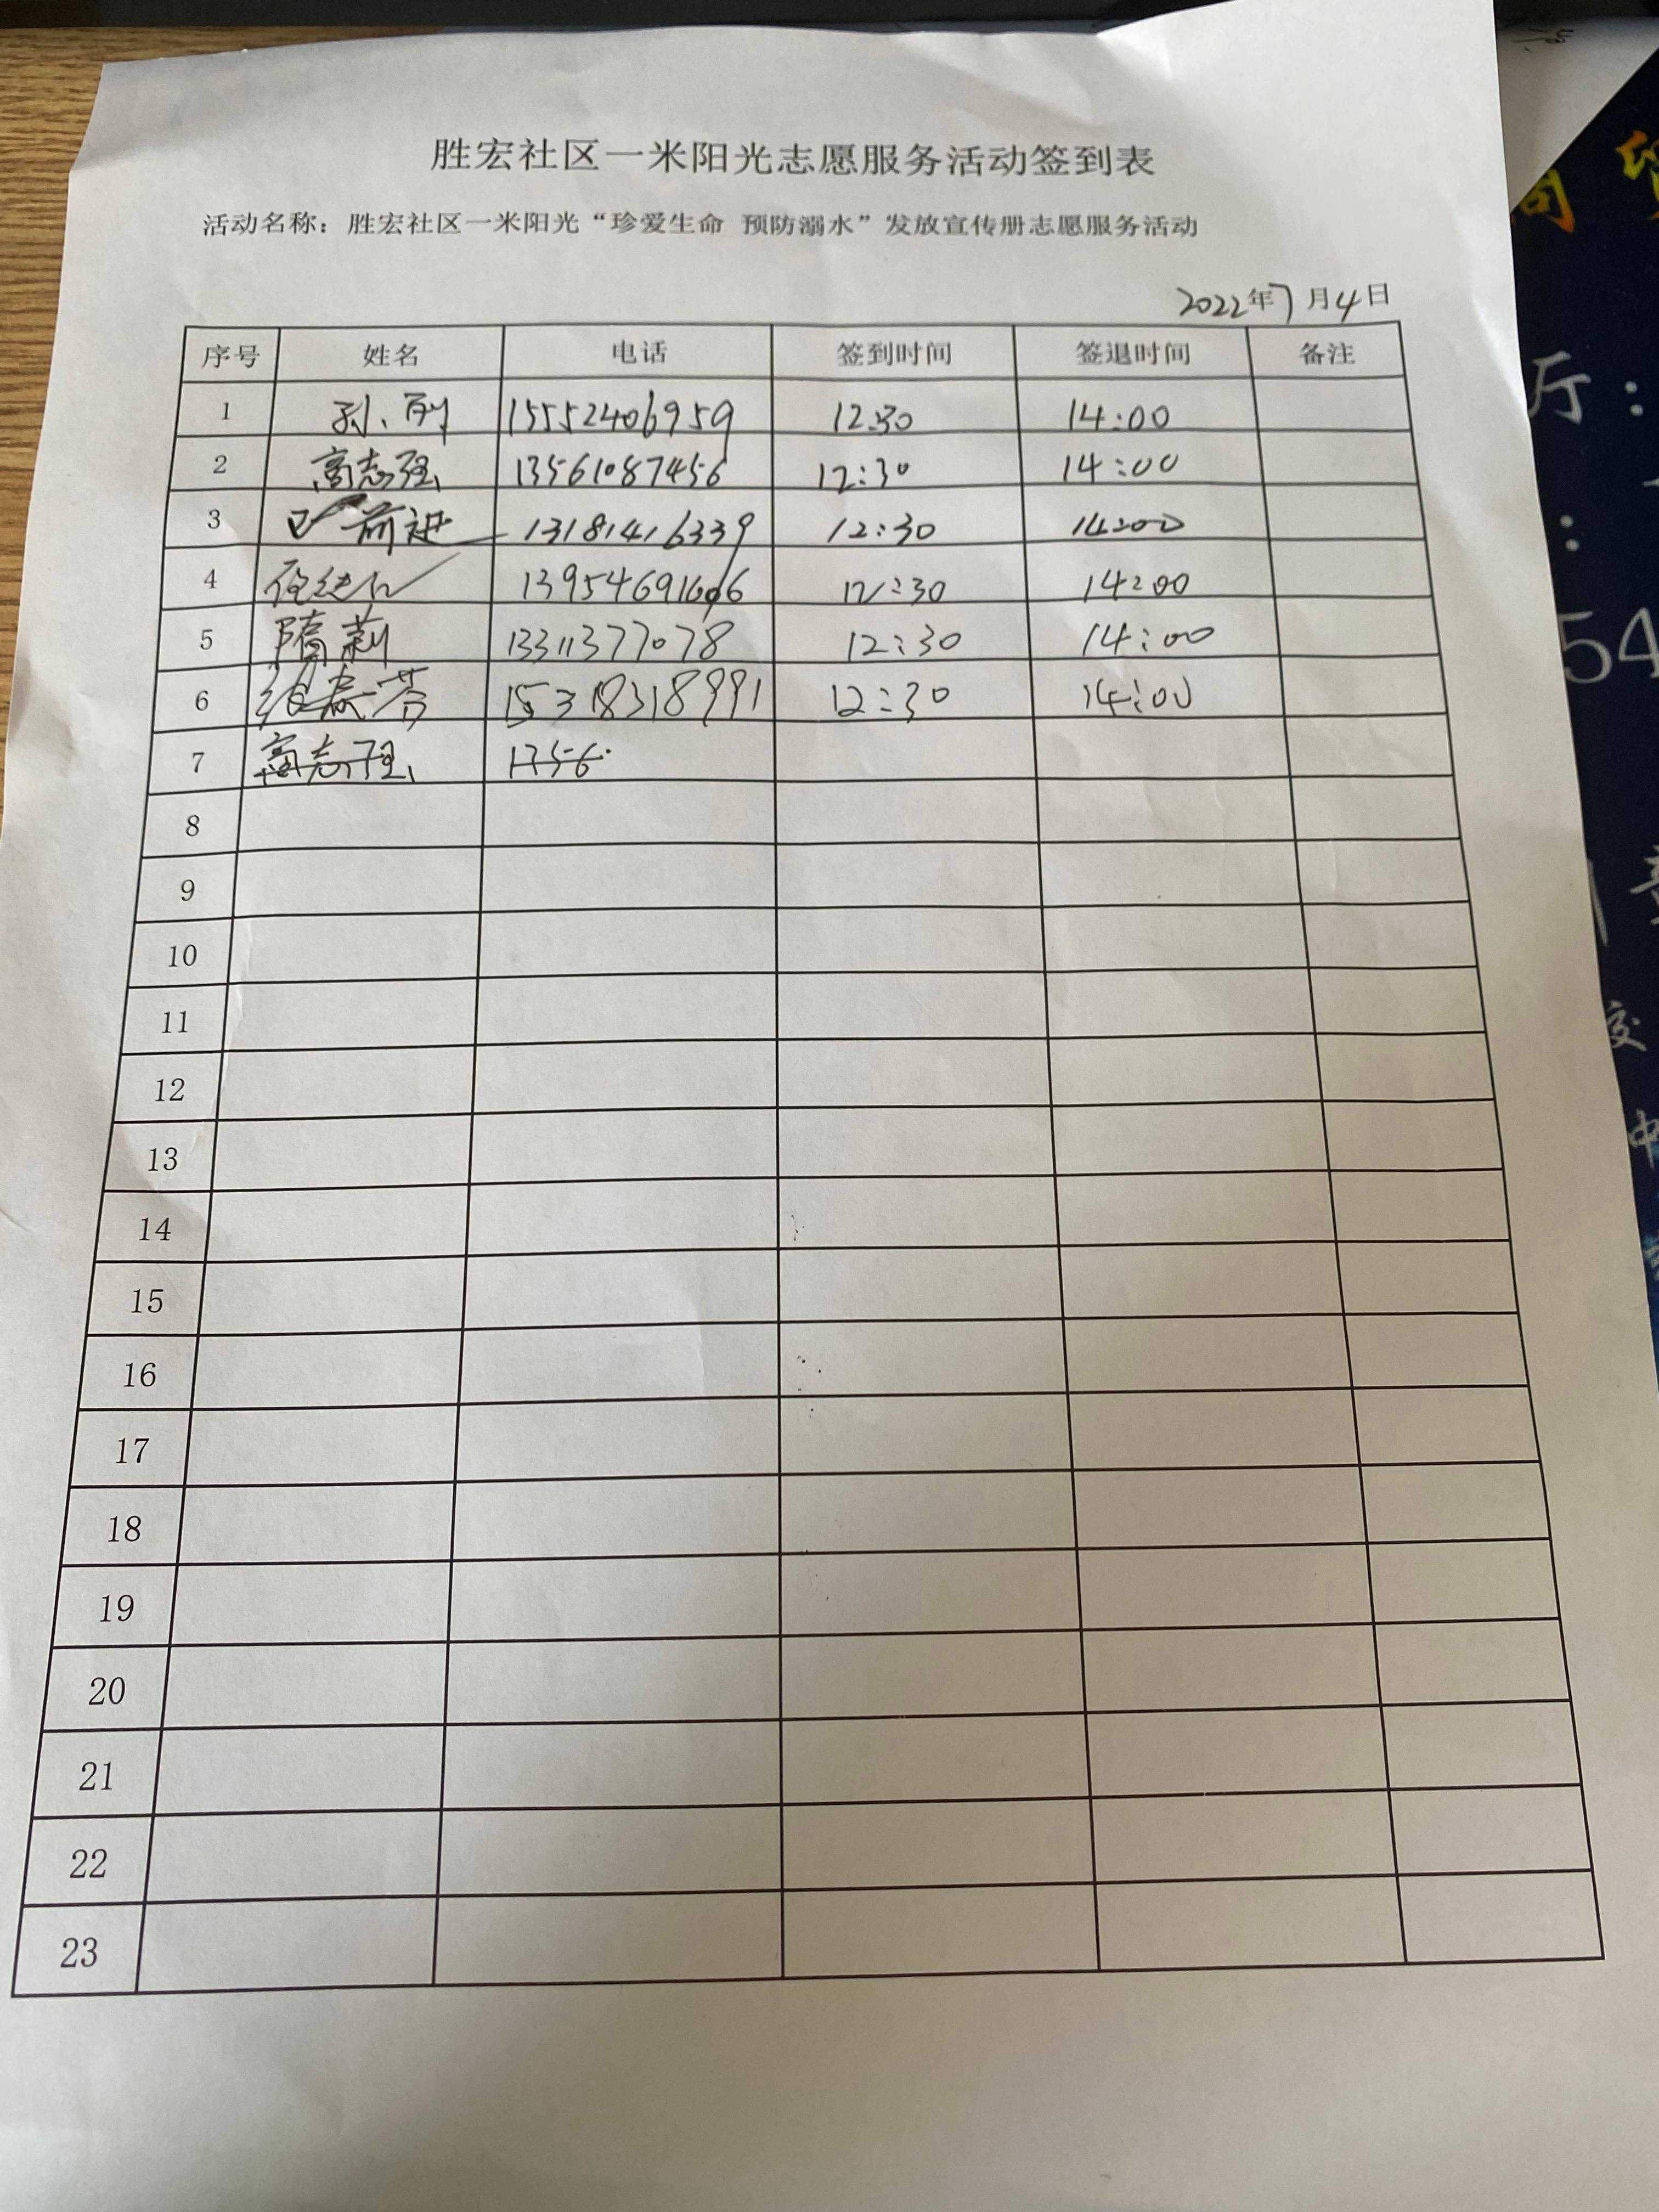 胜宏社区一米阳光志愿服务活动签到表
活动名称：胜宏社区一米阳光“珍爱生命 预防溺水”发放宣传册志愿服务活动
2022年7月4日
序号 姓名 电话 签到时间 签退时间 备注
1 15552406959 12:30 14:00
2 高志强 13561087456 12:30 14:00
3 前进 13181416339 12:30 14:00
4 12:30 14:00
5 隋莉 13311377078 12:30 14:00
6 15318318991 12:30 14:00
7 高志强 1356
8
9
10
11
12
13
14
15
16
17
18
19
20
21
22
23
厅：
：
54
交
中